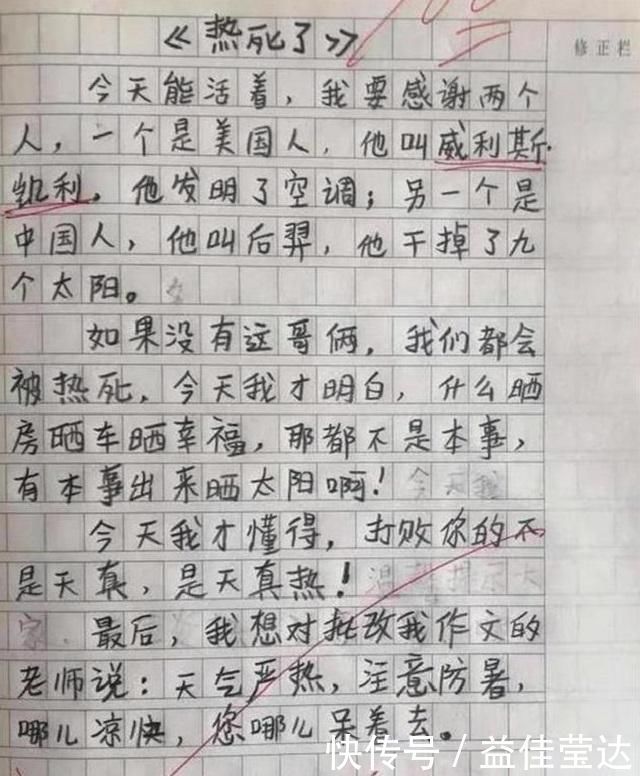 《热死了》
修正栏
今天能活着，我要感谢两个
人，一个是美国人，他叫威利斯·
凯利，他发明了空调；另一个是
中国人，他叫后羿，他干掉了九
个太阳。
如果没有这哥俩，我们都会
被热死，今天我才明白，什么晒
房晒车晒幸福，那都不是本事，
有本事出来晒太阳啊！
今天我才懂得，打败你的不
是天真，是天真热！
最后，我想对批改我作文的
老师说：天气严热，注意防暑，
哪儿凉快，您哪儿呆着去。
快传号／益佳莹达